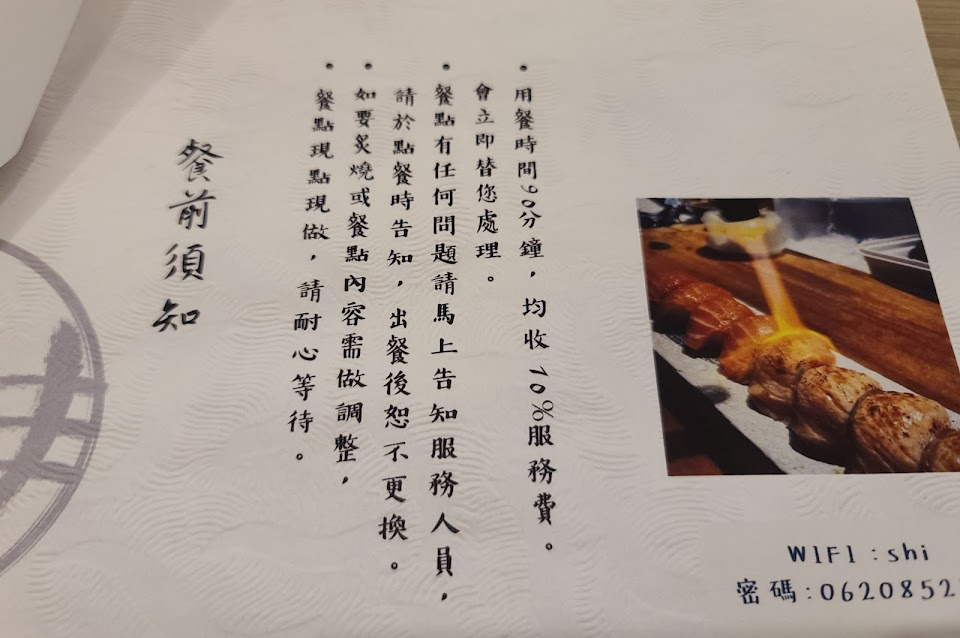 餐前須知
• 餐點現點現做，請耐心等待。
• 如要炙燒或餐點內容需做調整，
請於點餐時告知，出餐後恕不更換。
• 餐點有任何問題請馬上告知服務人員，
會立即替您處理。
• 用餐時間90分鐘，均收10%服務費。
WIFI：shi
密碼:0620852